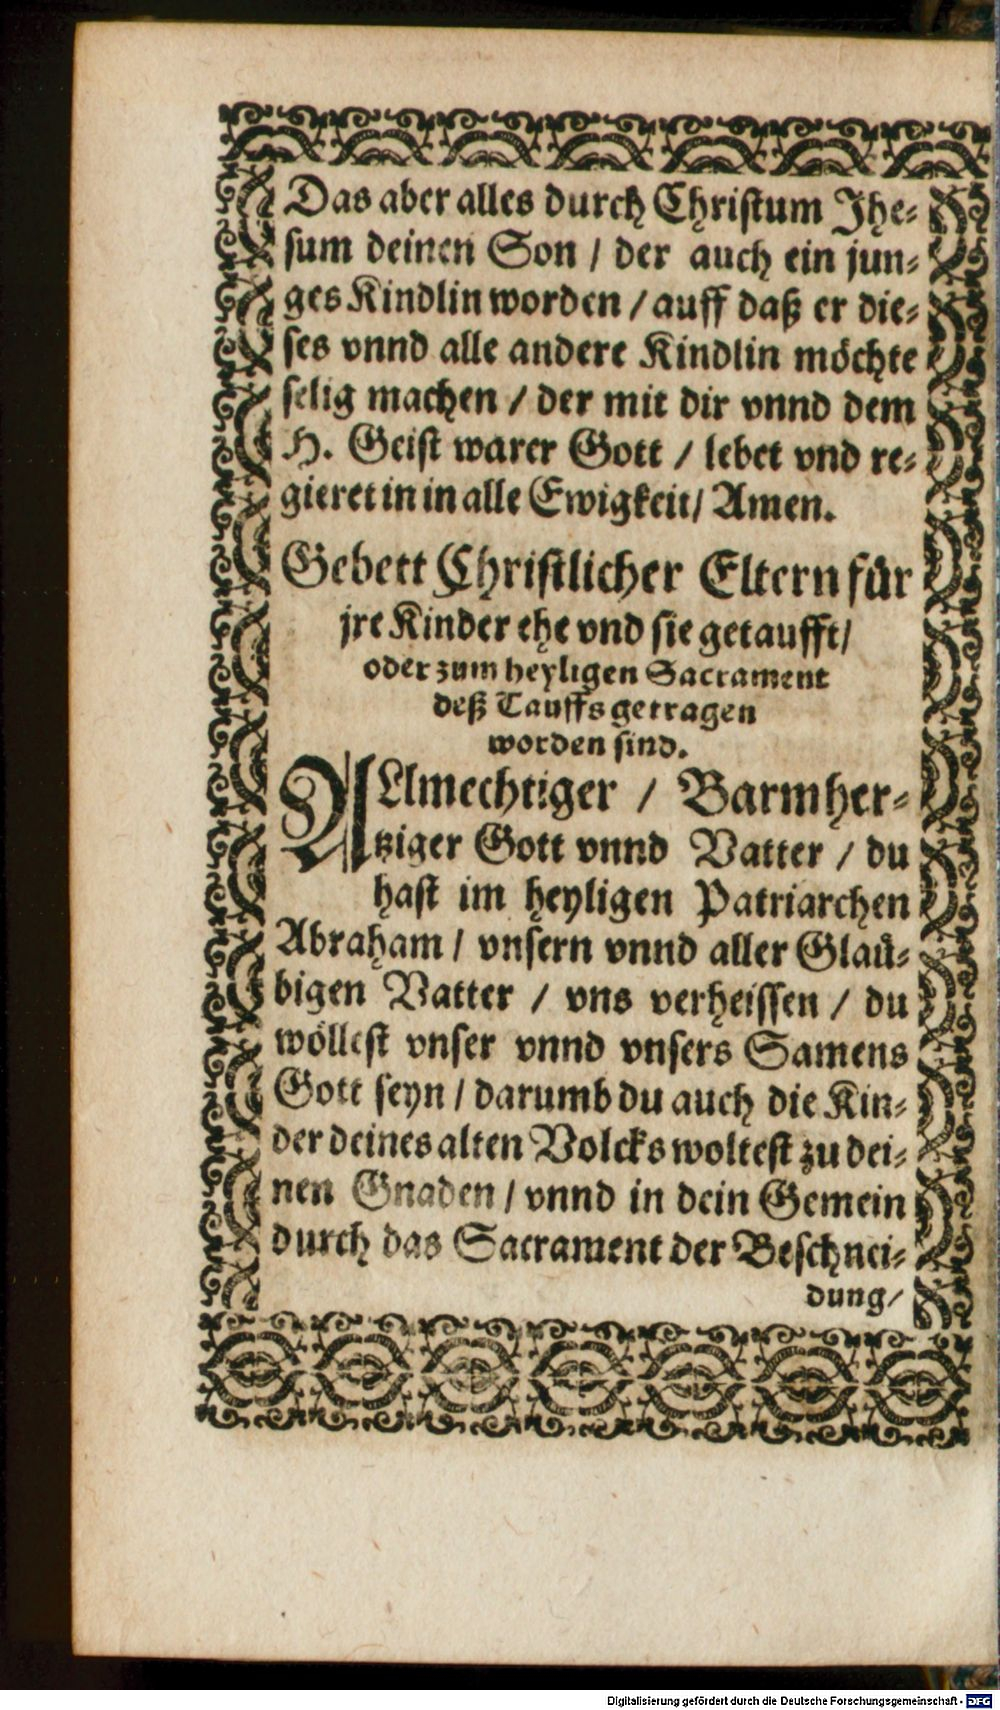 Das aber alles durch Christum Jhe⸗
sum deinen Son / der auch ein jun⸗
ges Kindlin worden / auff daß er die⸗
ses vnnd alle andere Kindlin möchte
selig machen / der mit dir vnnd dem
H. Geist warer Gott / lebet vnd re⸗
gieret in in alle Ewigkeit / Amen.
Gebett Christlicher Eltern für
jre Kinder ehe vnd sie getaufft /
oder zum heyligen Sacrament
deß Tauffs getragen
worden sind.
ALlmechtiger / Barmher⸗
tziger Gott vnnd Vatter / du
hast im heyligen Patriarchen
Abraham / vnsern vnnd aller Glaů⸗
bigen Vatter / vns verheissen / du
wöllest vnser vnnd vnsers Samens
Gott seyn / darumb du auch die Kin⸗
der deines alten Volcks woltest zu dei⸗
nen Gnaden / vnnd in dein Gemein
durch das Sacrament der Beschnei⸗
dung /
Digitalisierung gefördert durch die Deutsche Forschungsgemeinschaft - DFG